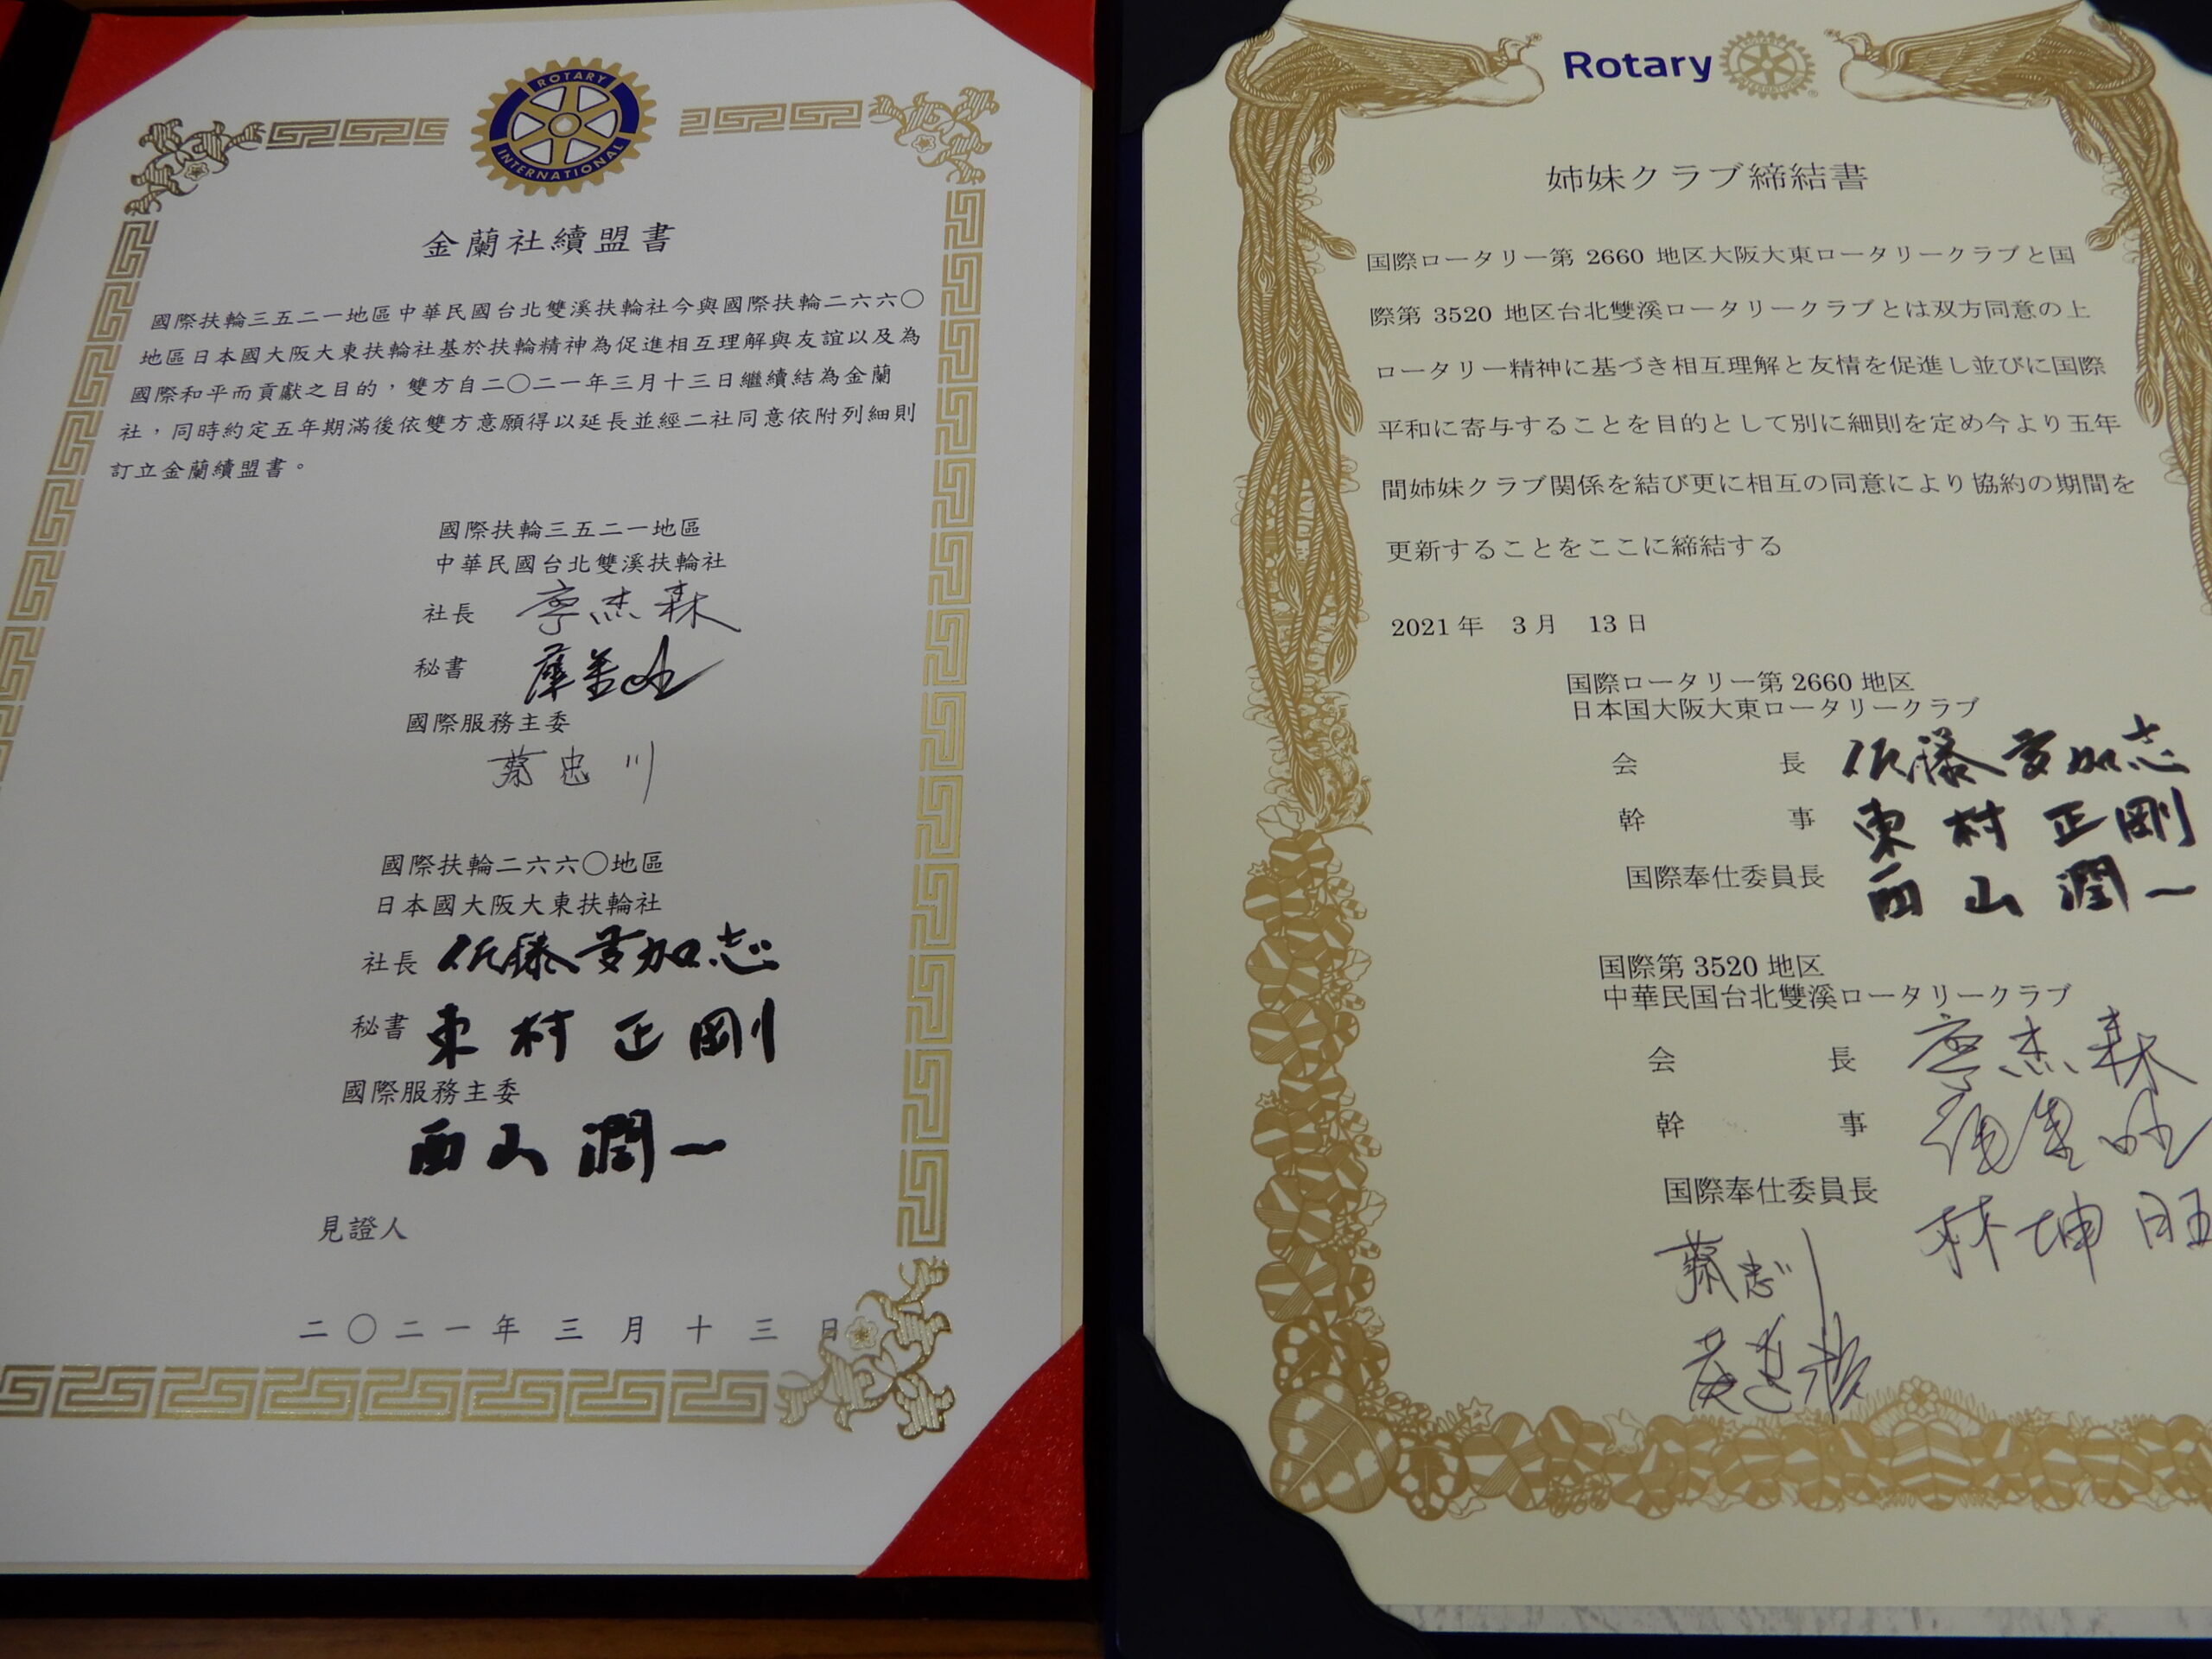 ROTARY
INTERNATIONAL
金蘭社續盟書
國際扶輪三五二一地區中華民國台北雙溪扶輪社今與國際扶輪二六六〇
地區日本國大阪大東扶輪社基於扶輪精神為促進相互理解與友誼以及為
國際和平而貢獻之目的，雙方自二〇二一年三月十三日繼續結為金蘭
社，同時約定五年期滿後依雙方意願得以延長並經二社同意依附列細則
訂立金蘭續盟書。
國際扶輪三五二一地區
中華民國台北雙溪扶輪社
社長 廖杰森
秘書
國際服務主委
蔡忠川
國際扶輪二六六〇地區
日本國大阪大東扶輪社
社長 佐藤多加志
秘書 東村正剛
國際服務主委
西山潤一
見證人
二〇二一年三月十三日
Rotary
姉妹クラブ締結書
国際ロータリー第 2660 地区大阪大東ロータリークラブと国
際第 3520 地区台北雙溪ロータリークラブとは双方同意の上
ロータリー精神に基づき相互理解と友情を促進し並びに国際
平和に寄与することを目的として別に細則を定め今より五年
間姉妹クラブ関係を結び更に相互の同意により協約の期間を
更新することをここに締結する
2021年 3月 13日
国際ロータリー第 2660 地区
日本国大阪大東ロータリークラブ
会長 佐藤多加志
幹事 東村正剛
国際奉仕委員長 西山潤一
国際第 3520 地区
中華民国台北雙溪ロータリークラブ
会長 廖杰森
幹事
国際奉仕委員長 林坤旺
蔡忠川